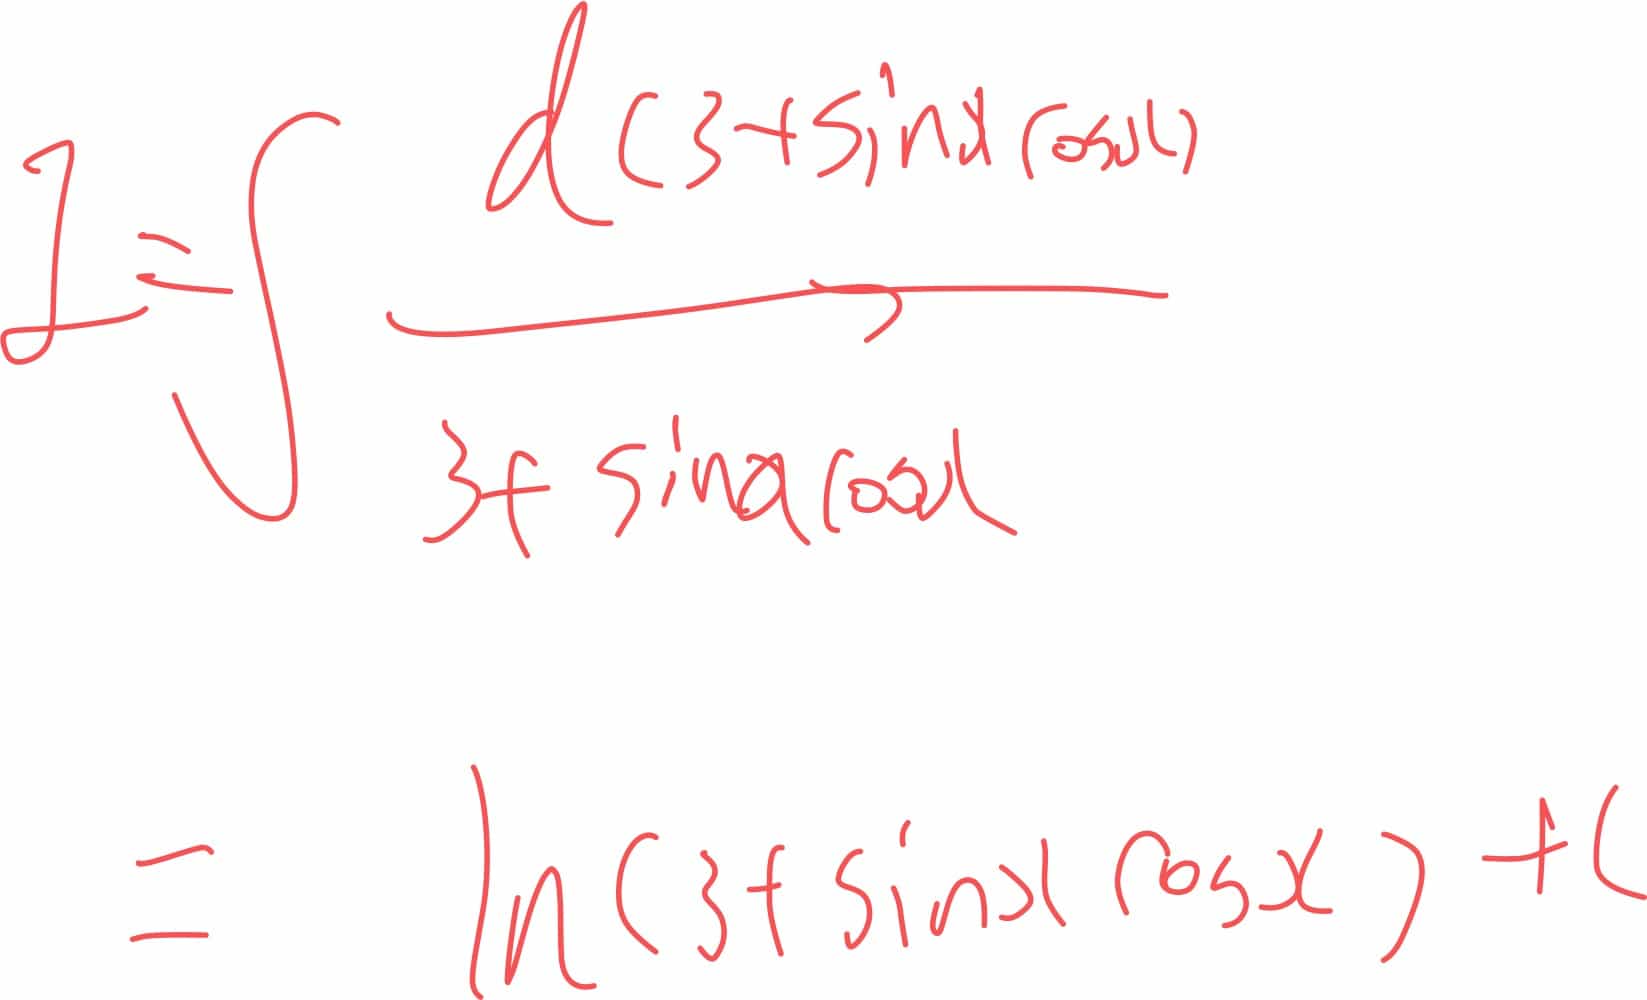 I = ∫ d(3+sinx cosx) / 3+ sinx cosx
= ln(3+ sinx cosx) + C